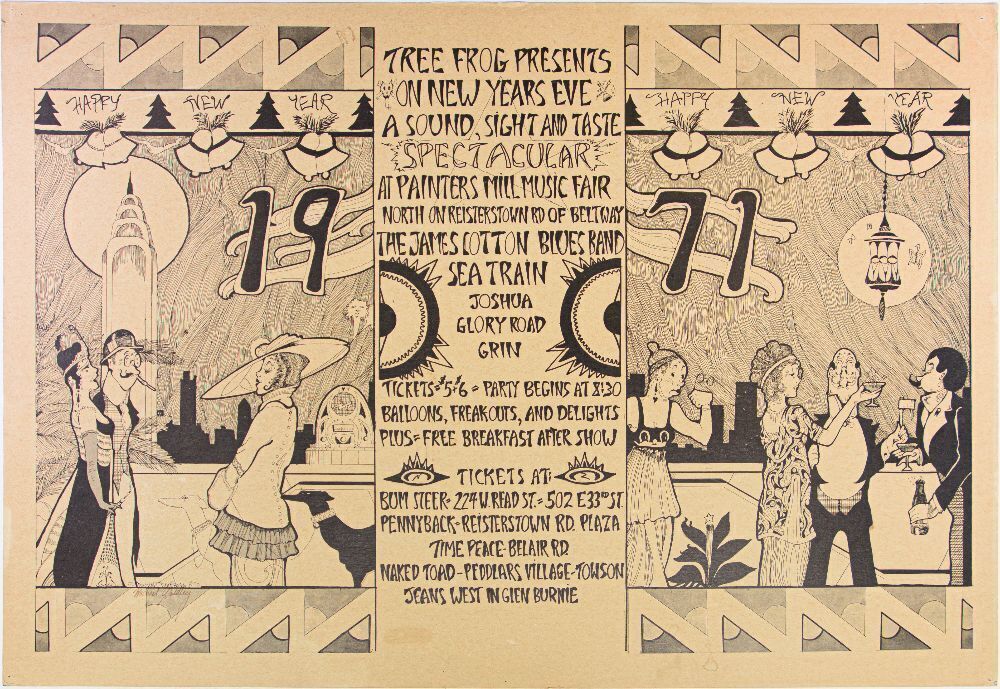 HAPPY NEW YEAR
19
TREE FROG PRESENTS
ON NEW YEARS EVE
A SOUND, SIGHT AND TASTE
SPECTACULAR
AT PAINTERS MILL MUSIC FAIR
NORTH ON REISTERSTOWN RD OF BELTWAY
THE JAMES COTTON BLUES BAND
SEA TRAIN
JOSHUA
GLORY ROAD
GRIN
TICKETS=$5-$6 = PARTY BEGINS AT 8:30
BALLOONS, FREAKOUTS, AND DELIGHTS
PLUS=FREE BREAKFAST AFTER SHOW
TICKETS AT:
BUM STEER= 224 W. READ ST.= 502 E 33RD ST.
PENNYBACK-REISTERSTOWN RD. PLAZA
TIME PEACE-BELAIR RD
NAKED TOAD-PEDDLARS VILLAGE-TOWSON
JEANS WEST IN GLEN BURNIE
HAPPY NEW YEAR
71